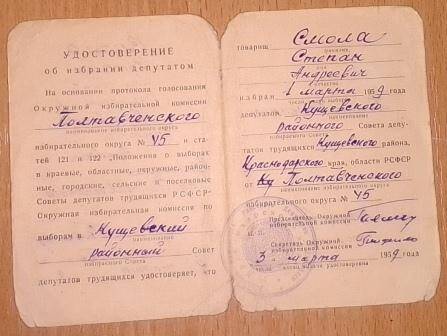 УДОСТОВЕРЕНИЕ
об избрании депутатом
На основании протокола голосования
Окружной избирательной комиссии
Полтавченского
наименование избирательного округа
избирательного округа № 45 и ста-
тей 121 и 122 „Положения о выборах
в краевые, областные, окружные, район-
ные, городские, сельские и поселковые
Советы депутатов трудящихся РСФСР"
Окружная избирательная комиссия по
выборам в Кущевский
районный Совет
наименование Совета
депутатов трудящихся удостоверяет, что
товарищ Смола
фамилия
Степан
имя
Андреевич
отчество
избран 1 марта 1959 года
депутатом Кущевского
районного Совета депу-
татов трудящихся Кущевского района,
Краснодарского края, области РСФСР
от Полтавченского
наименование избирательного округа
избирательного округа № 45
Председатель Окружной
избирательной комиссии
М. П.
Секретарь Окружной
избирательной комиссии
3 марта 1959 года